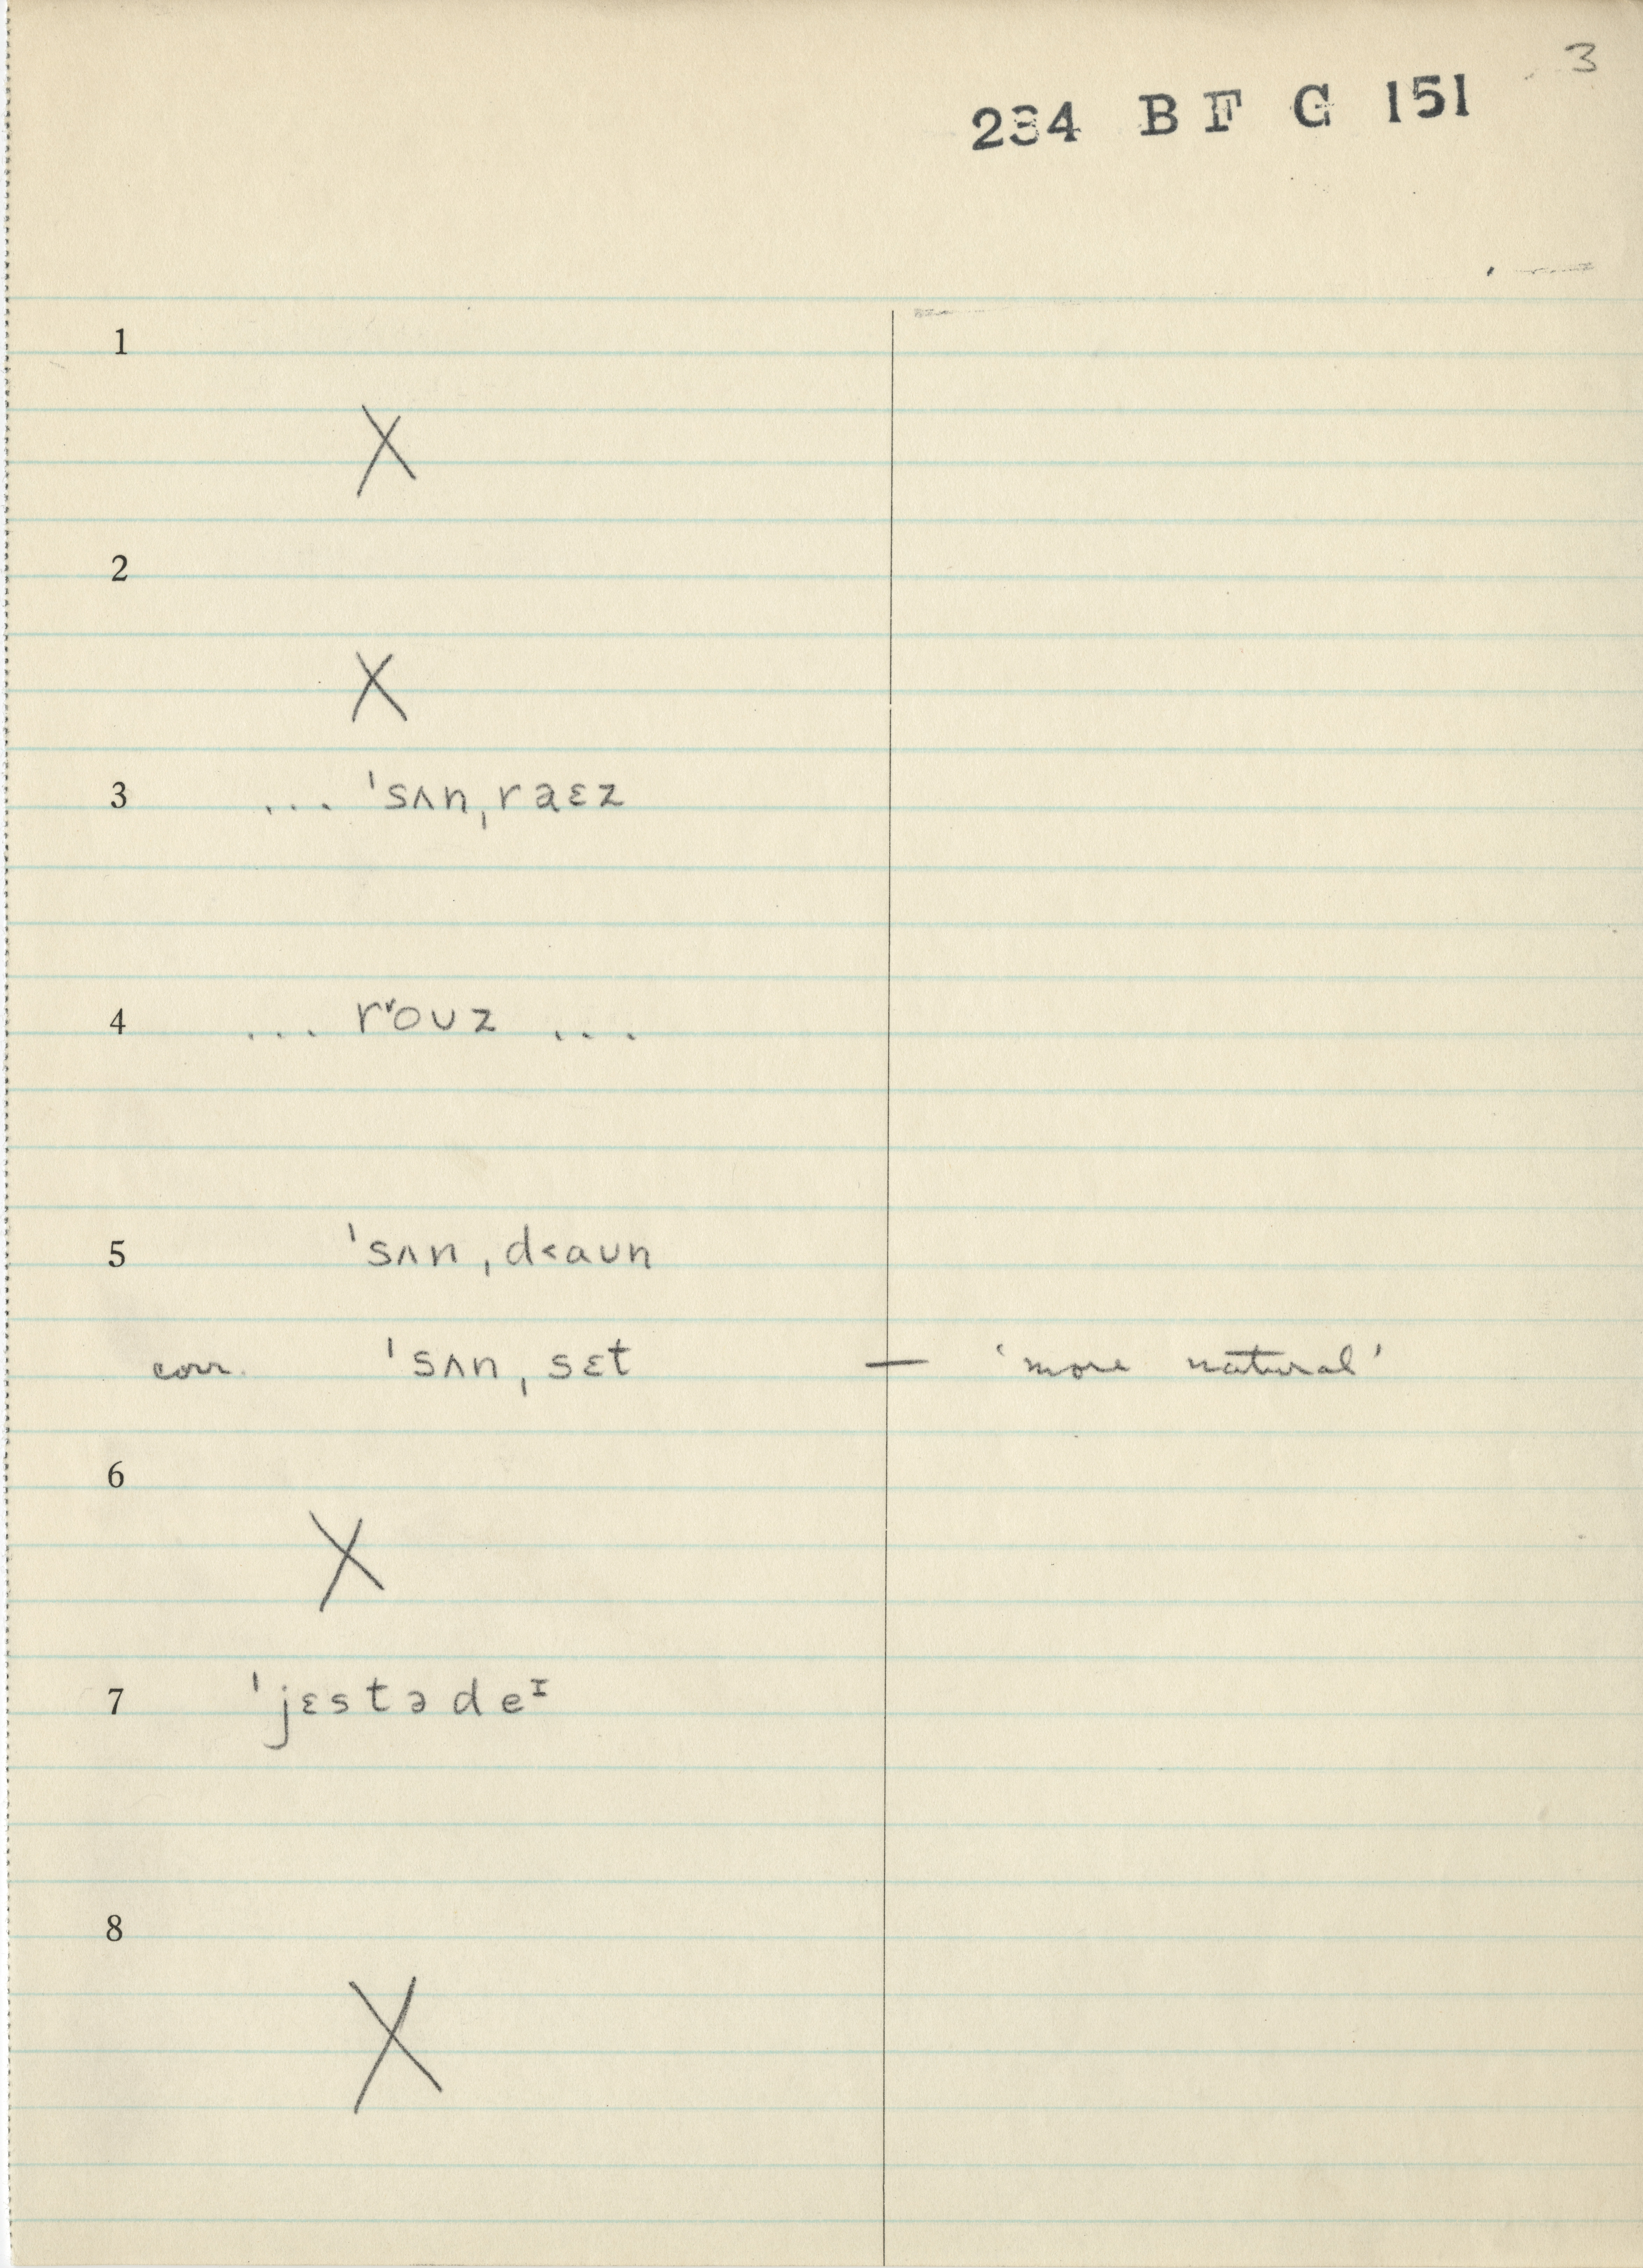 3
234 B F G 151
1
X
2
X
3 ... ˈsʌnˌraɛz
4 ... rˠoʊz ...
5 ˈsʌnˌd<aʊn
corr. ˈsʌnˌsɛt — 'more natural'
6
X
7 ˈjɛstədeᴵ
8
X